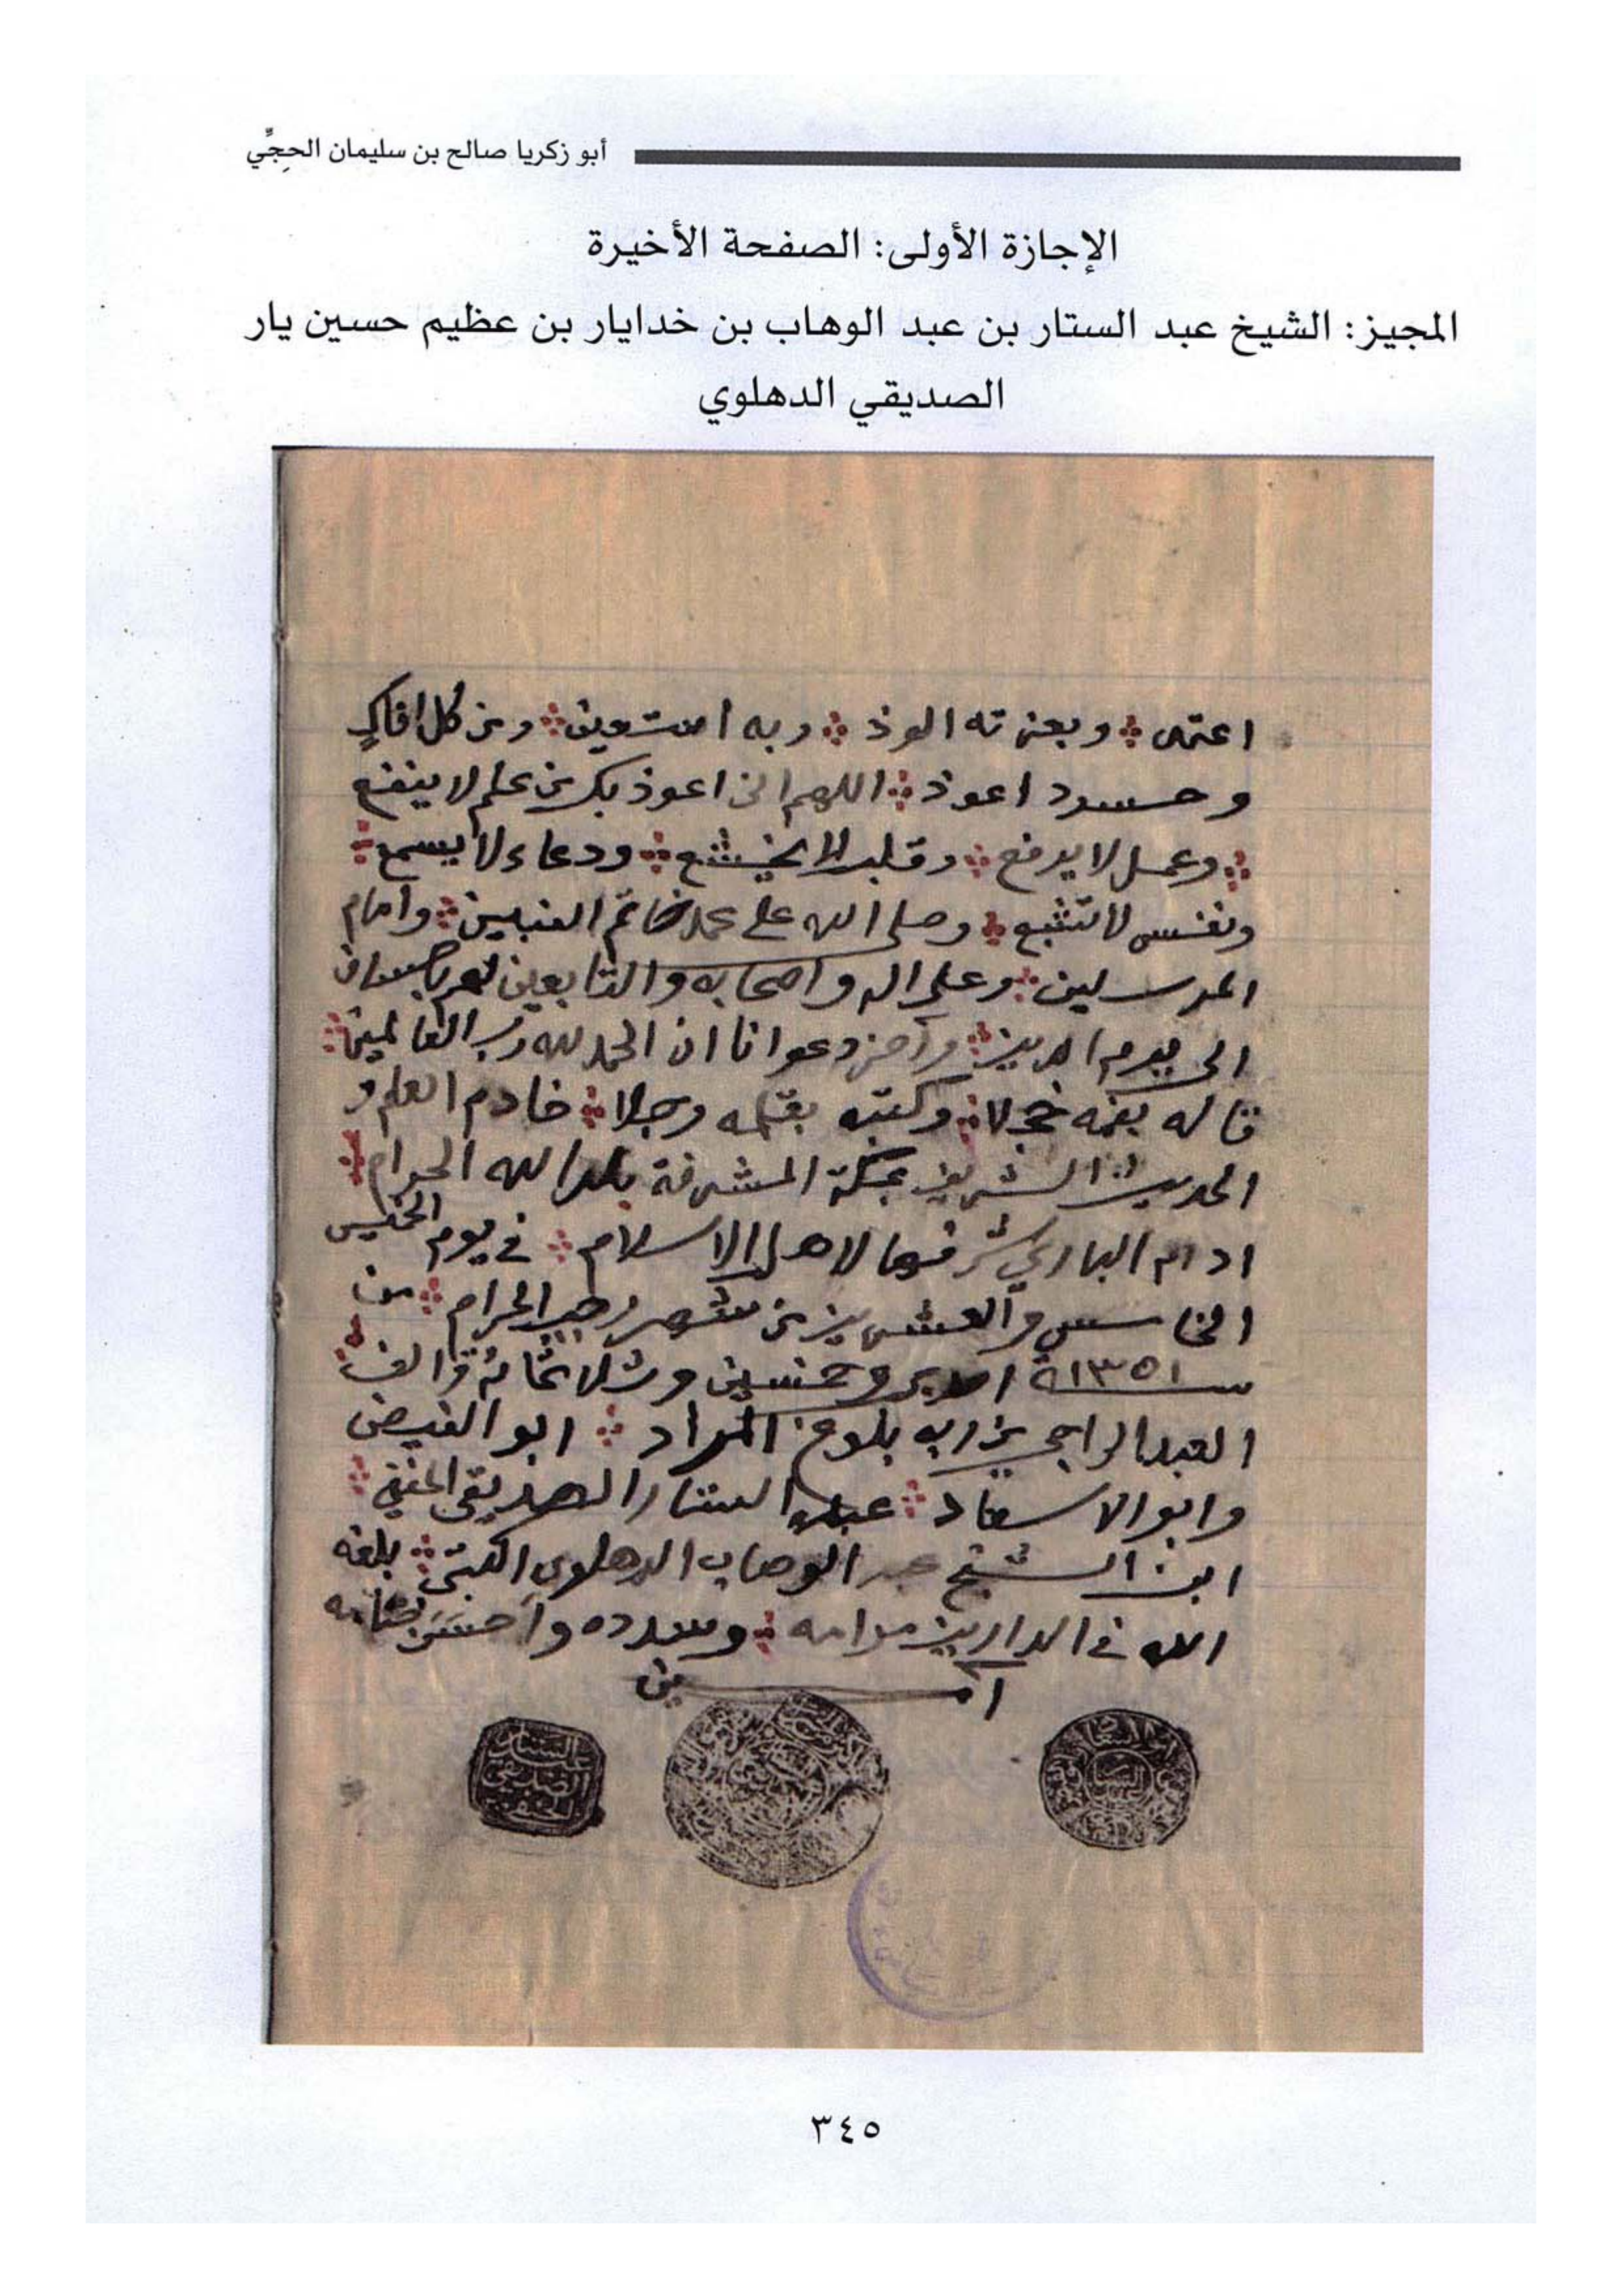 أبو زكريا صالح بن سليمان الحِجِّي
الإجازة الأولى: الصفحة الأخيرة
المجيز: الشيخ عبد الستار بن عبد الوهاب بن خدايار بن عظيم حسين يار
الصديقي الدهلوي
اعتمد وبعزته الوذ وبه استعين ومن كل افاكٍ
وحسود اعوذ اللهم انى اعوذ بك من علم لا ينفع
وعمل لا يرفع وقلب لا يخشع ودعاء لا يسمع
ونفس لا تشبع وصلى الله على محمد خاتم النبيين وامام
المرسلين وعلى اله واصحابه والتابعين لهم باحسان
الى يوم الدين وآخر دعوانا ان الحمد لله رب العالمين
قاله بفمه خجلا وكتبه بقلمه وجلا خادم العلم و
الحديث الشريف بمكة المشرفة بلد الله الحرام
ادام الباري شرفها لاهل الاسلام في يوم الخميس
الخامس والعشرين من شهر رجب الحرام من
سنة ١٣٥١ احدى وخمسين وثلاثمائة والف
العبد الراجي من ربه بلوغ المراد ابو الفيض
وابو الاسعاد عبد الستار الصديقى الحنفي
ابن الشيخ عبد الوهاب الدهلوى الكتبى بلغه
الله في الدارين مرامه وسدده واحسن ختامه
آمين
عبد الستار
الصديقي
الحنفي
٣٤٥